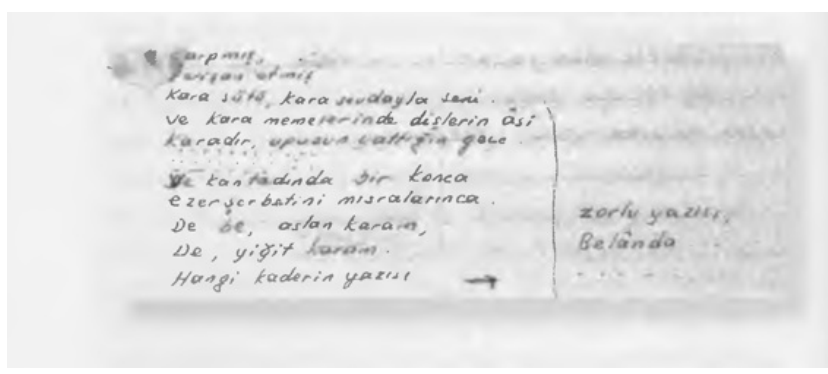 Çarpmış,
Perişan etmiş
Kara sütü, kara sevdayla seni.
Ve kara memelerinde dişlerin âsi
Karadır, upuzun yattığın gece
. . . . . . . . . .
Ve kan tadında bir konca
ezer şerbetini mısralarınca.
De be, aslan karam,
De, yiğit karam.
Hangi kaderin yazısı →
zorlu yazısı,
Belânda
. . . . .